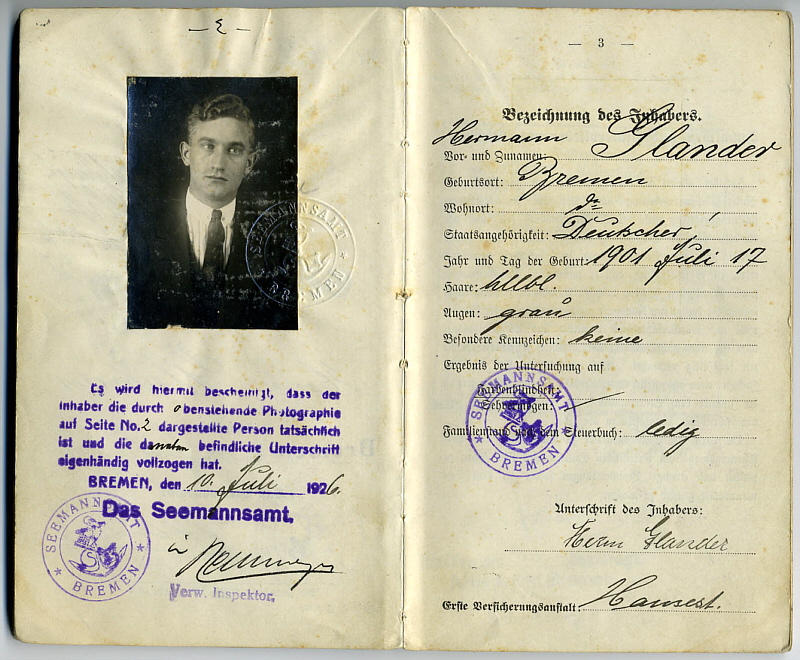 - 2 -
SEEMANNSAMT
BREMEN
Es wird hiermit bescheinigt, dass der
Inhaber die durch obenstehende Photographie
auf Seite No. 2 dargestellte Person tatsächlich
ist und die darunter befindliche Unterschrift
eigenhändig vollzogen hat.
BREMEN, den 10. Juli 1926.
Das Seemannsamt.
SEEMANNSAMT
* BREMEN *
Verw. Inspektor.
— 3 —
Bezeichnung des Inhabers.
Vor- und Zunamen: Hermann Glander
Geburtsort: Bremen
Wohnort: do
Staatsangehörigkeit: Deutscher
Jahr und Tag der Geburt: 1901 Juli 17
Haare: hllbl.
Augen: grau
Besondere Kennzeichen: keine
Ergebnis der Untersuchung auf
Farbenblindheit:
Sehvermögen:
SEEMANNSAMT
* BREMEN *
Familienstand nach dem Steuerbuch: ledig
Unterschrift des Inhabers:
Herm Glander
Erste Versicherungsanstalt: Hanseat.